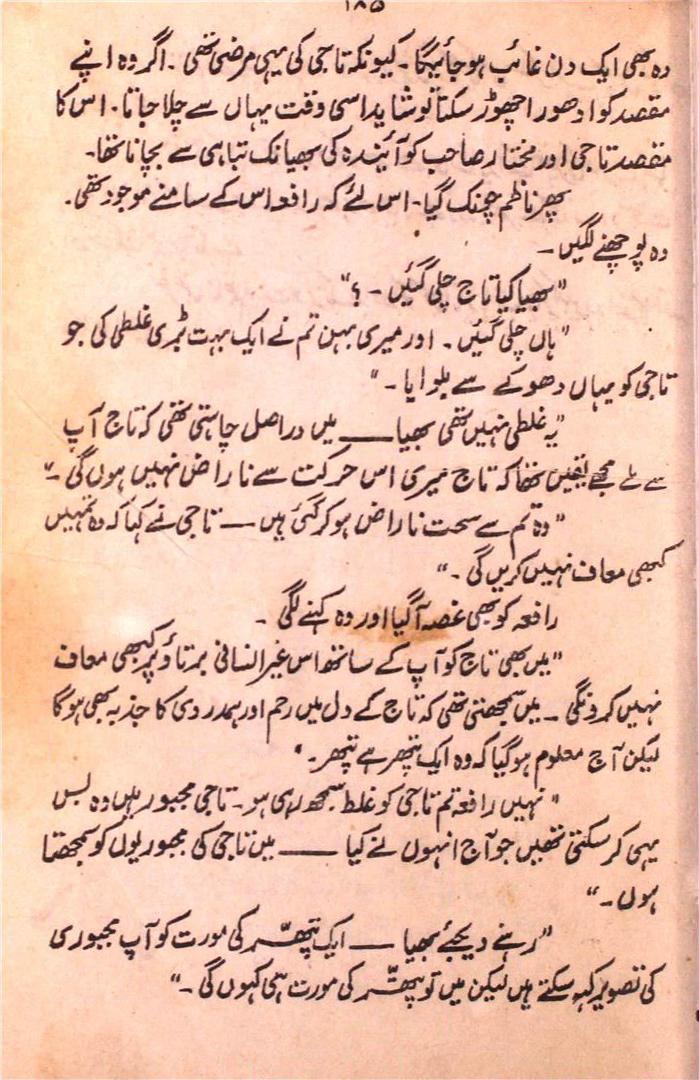 ۱۸۵
وہ بھی ایک دن غائب ہو جائیگا۔ کیونکہ تاجی کی یہی مرضی تھی۔ اگر وہ اپنے
مقصد کو ادھورا چھوڑ سکتا تو شاید اسی وقت یہاں سے چلا جاتا۔ اس کا
مقصد تاجی اور مختار صاحب کو آئیندہ کی بھیانک تباہی سے بچانا تھا۔
پھر ناظم چونک گیا۔ اس لئے کہ رافعہ اس کے سامنے موجود تھی۔
وہ پوچھنے لگیں۔
"بھیا کیا تاج چلی گئیں۔ ؟"
"ہاں چلی گئیں۔ اور میری بہن تم نے ایک بہت بڑی غلطی کی جو
تاجی کو یہاں دھوکے سے بلوایا۔"
"یہ غلطی نہیں تھی بھیا —— میں دراصل چاہتی تھی کہ تاج آپ
سے ملے مجھے یقین تھا کہ تاج میری اس حرکت سے ناراض نہیں ہوں گی۔"
"وہ تم سے سخت ناراض ہو کر گئی ہیں — تاجی نے کہا کہ وہ تمہیں
کبھی معاف نہیں کریں گی۔"
رافعہ کو بھی غصہ آگیا اور وہ کہنے لگی۔
"میں بھی تاج کو آپ کے ساتھ اس غیر انسانی برتاؤ پر کبھی معاف
نہیں کرونگی۔ میں سمجھتی تھی کہ تاج کے دل میں رحم اور ہمدردی کا جذبہ بھی ہو گا
لیکن آج معلوم ہو گیا کہ وہ ایک پتھر ہے پتھر۔"
"نہیں رافعہ تم تاجی کو غلط سمجھ رہی ہو۔ تاجی مجبور ہیں وہ بس
یہی کر سکتی تھیں جو آج انہوں نے کیا —— میں تاجی کی مجبوریوں کو سمجھتا
ہوں۔"
"رہنے دیجئے بھیا —— ایک پتھّر کی مورت کو آپ مجبوری
کی تصویر کہہ سکتے ہیں لیکن میں تو پتھّر کی مورت ہی کہوں گی۔"